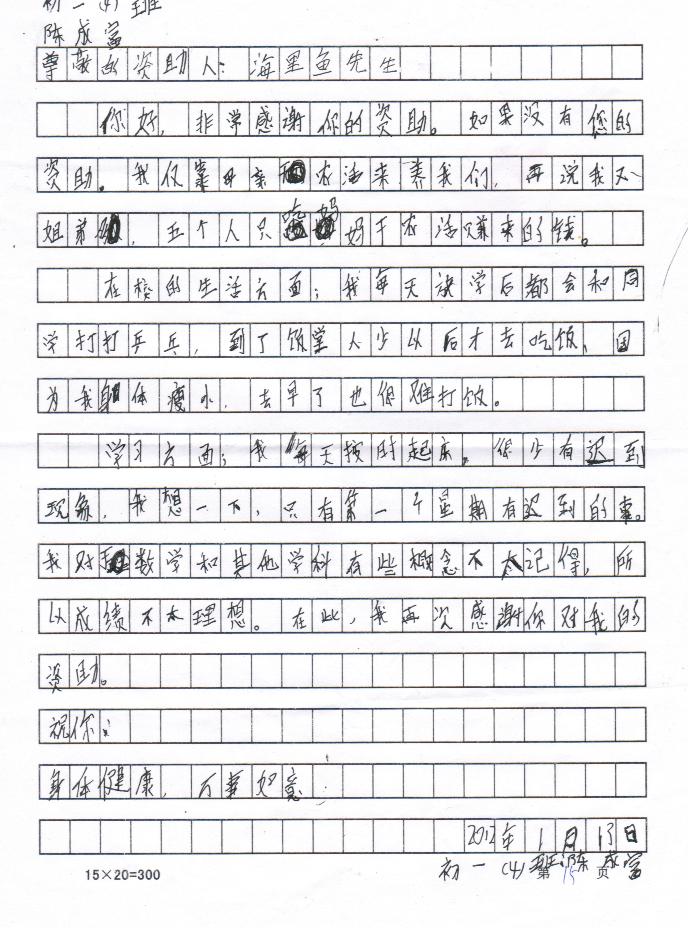 初一(4)班
陈成富
尊敬的资助人：海里鱼先生
你好，非常感谢你的资助。如果没有您的
资助。我仅靠母亲农活来养我们，再说我又一
姐弟，五个人只吃妈妈干农活赚来的钱。
在校的生活方面；我每天放学后都会和同
学打打乒乓，到了饭堂人少以后才去吃饭，因
为我身体瘦小，去早了也很难打饭。
学习方面；我每天按时起床。很少有迟到
现象，我想一下，只有第一个星期有迟到的事。
我对数学和其他学科有些概念不太记得，所
以成绩不太理想。在此，我再次感谢你对我的
资助。
祝你：
身体健康，万事如意
2012年1月13日
15×20=300
初一(4)班陈成富
第15页